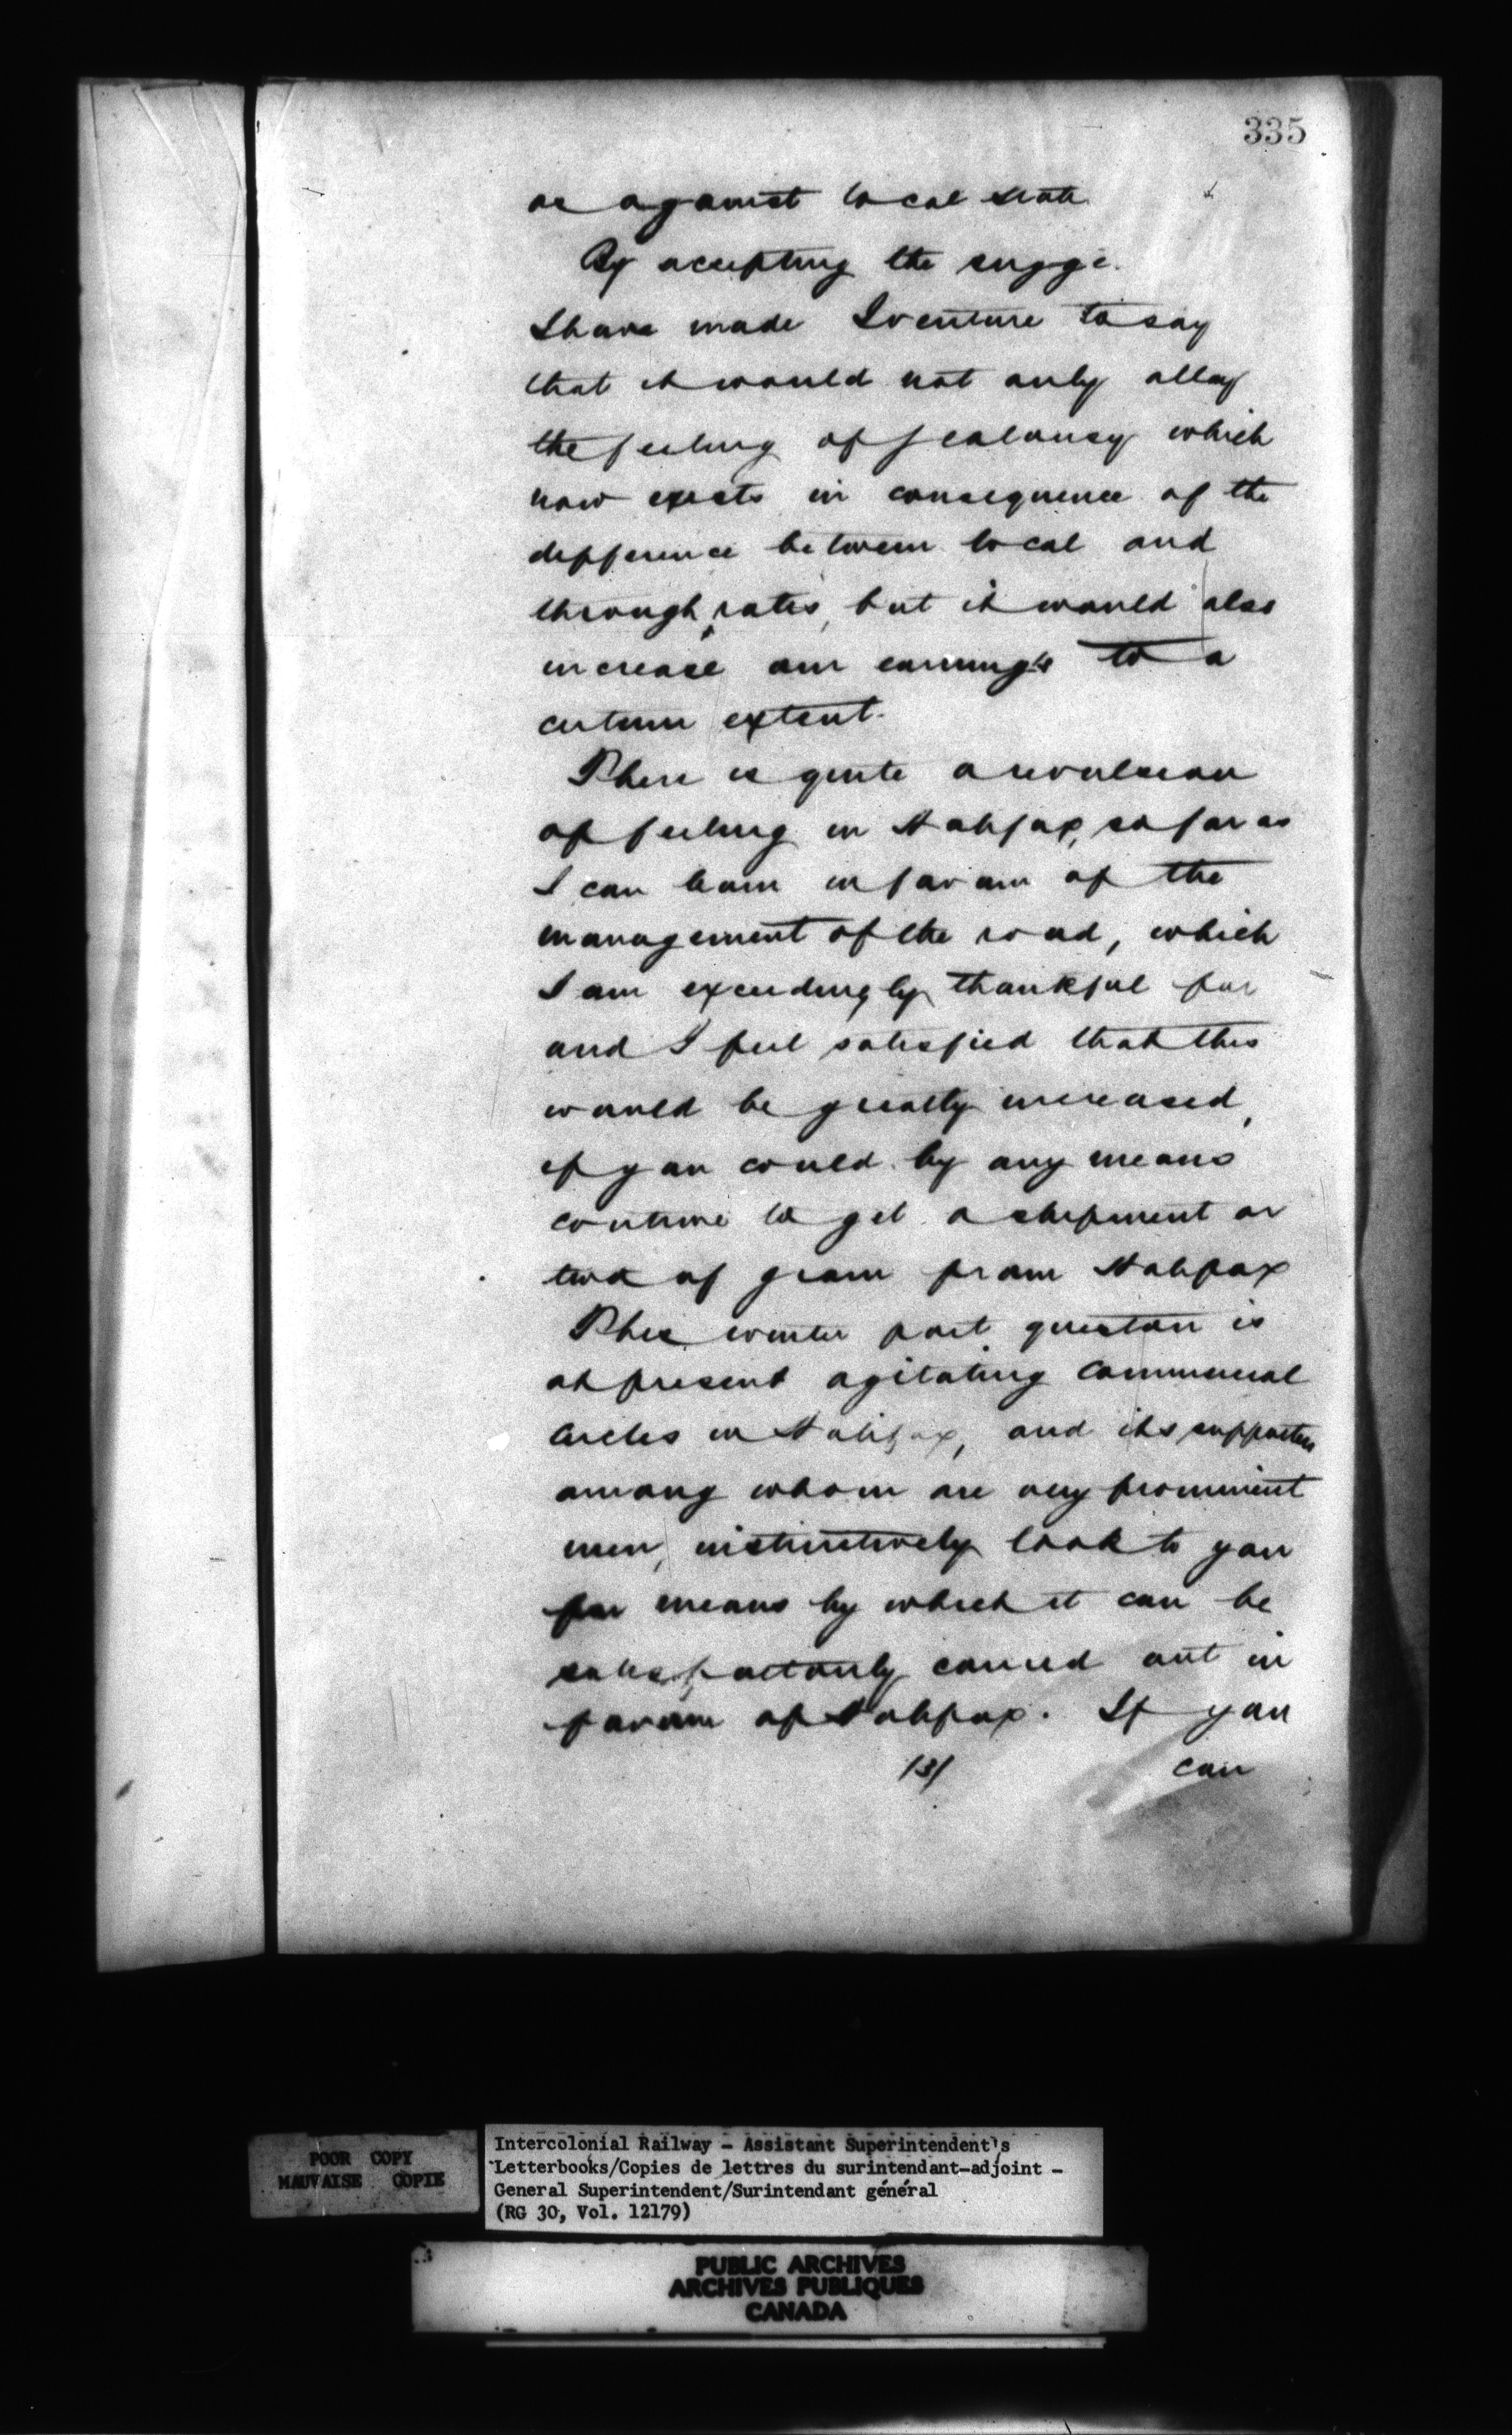 335
as against local rate
By accepting the sugge.
I have made I venture to say
that it would not only allay
the feeling of jealousy which
now exists in consequence of the
difference between local and
through rates, but it would also
increase our earnings to a
certain extent.
There is quite a revulsion
of feeling in Halifax, so far as
I can learn in favour of the
management of the road, which
I am exceedingly thankful for
and I feel satisfied that this
would be greatly increased,
if you could by any means
contrive to get a shipment or
two of grain from Halifax
This winter port question is
at present agitating commercial
circles in Halifax, and its supporters
among whom are very prominent
men, instinctively look to you
for means by which it can be
satisfactorily carried out in
favour of Halifax. If you
/3/ can
POOR COPY
MAUVAISE COPIE
Intercolonial Railway - Assistant Superintendent's
Letterbooks/Copies de lettres du surintendant-adjoint -
General Superintendent/Surintendant général
(RG 30, Vol. 12179)
PUBLIC ARCHIVES
ARCHIVES PUBLIQUES
CANADA